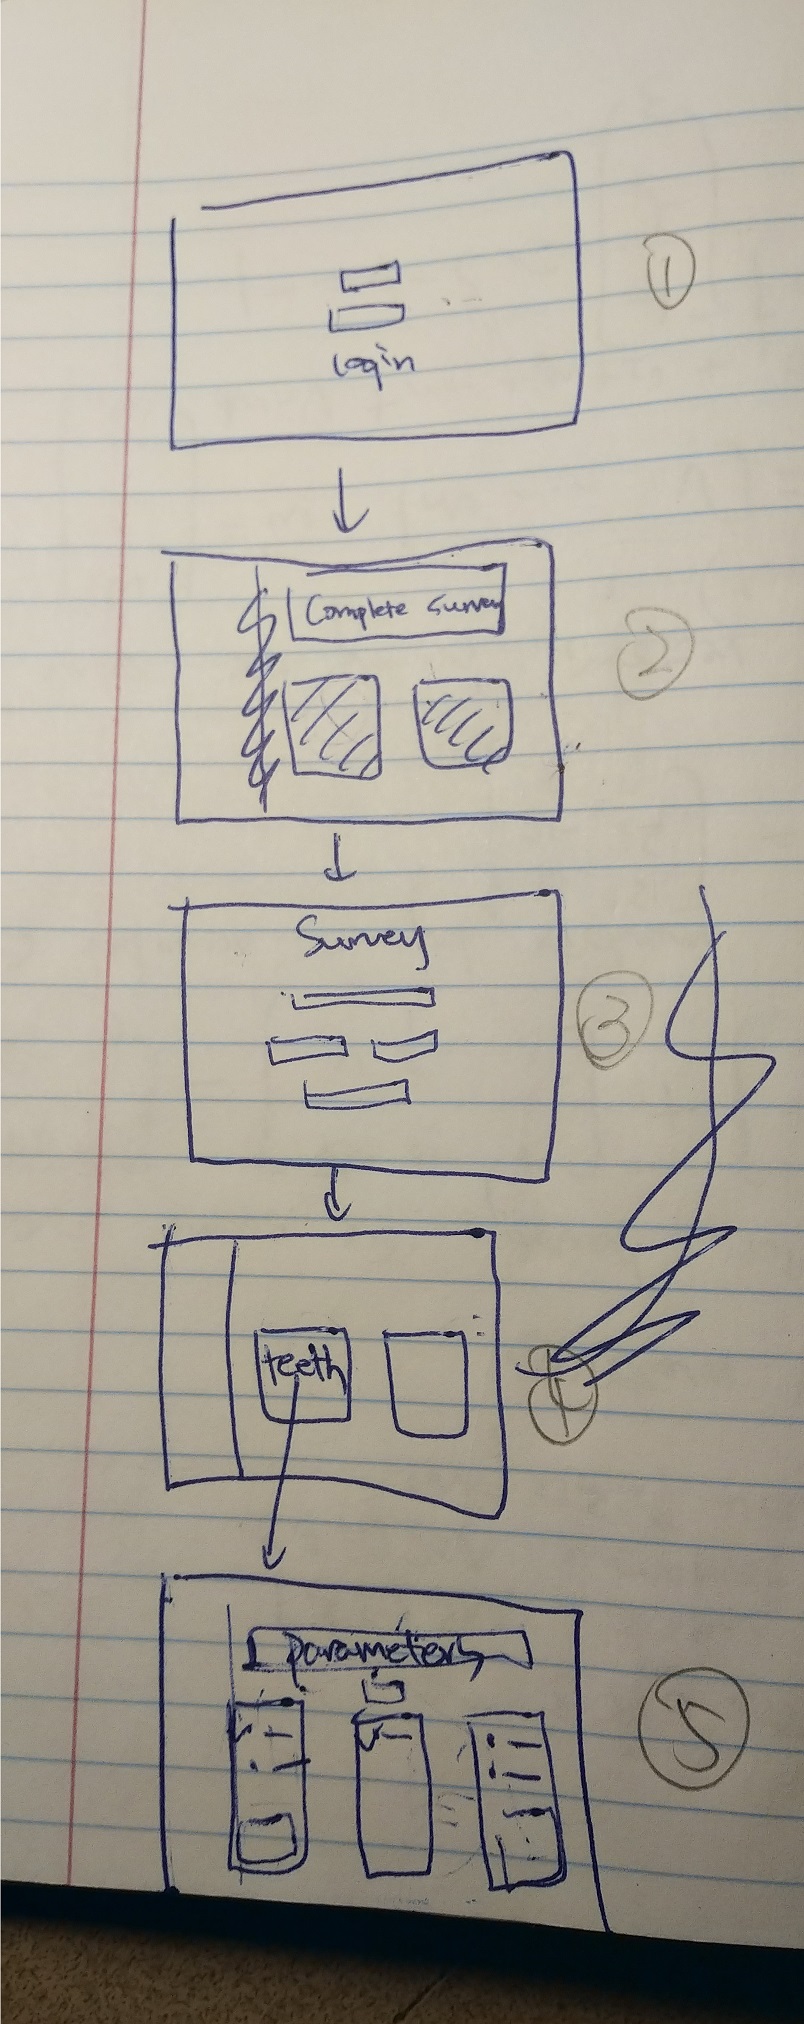 login
1
Complete survey
2
Survey
3
teeth
4
parameters
5